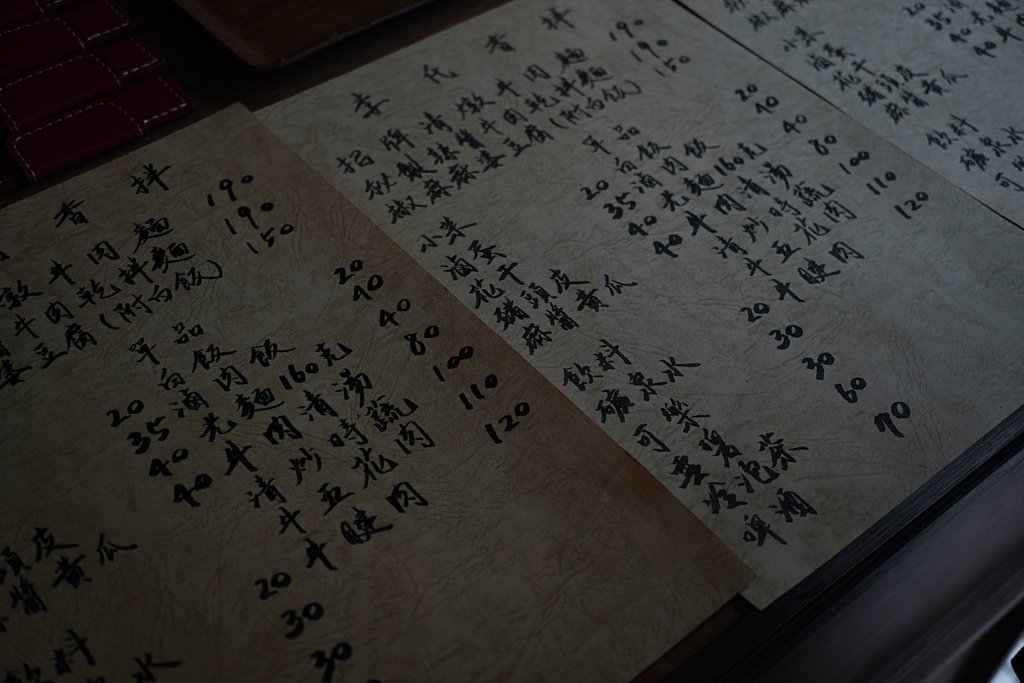 香拌
燉牛肉麵 190
牛肉乾拌麵 190
婆豆腐(附白飯) 150
單品
白飯 20
滷肉飯 40
光麵160克 40
牛肉清湯 80
清炒時蔬 100
牛五花肉 110
牛腱肉 120
20
35
頭皮 40
醬黃瓜 40
飲料
泉水 20
30
30
李氏香拌
招牌清燉牛肉麵 190
秘製辣醬牛肉乾拌麵 190
椒麻麻婆豆腐(附白飯) 150
單品
白飯 20
滷肉飯 40
光麵160克 40
牛肉清湯 80
清炒時蔬 100
牛五花肉 110
牛腱肉 120
小菜
滷蛋 20
花干 35
豬頭皮 40
麻醬黃瓜 40
飲料
礦泉水 20
可樂 30
雪碧 30
冷泡茶 60
啤酒 70
小菜
滷蛋 20
花干 35
豬頭皮 40
麻醬黃瓜 40
飲料
礦泉水
可